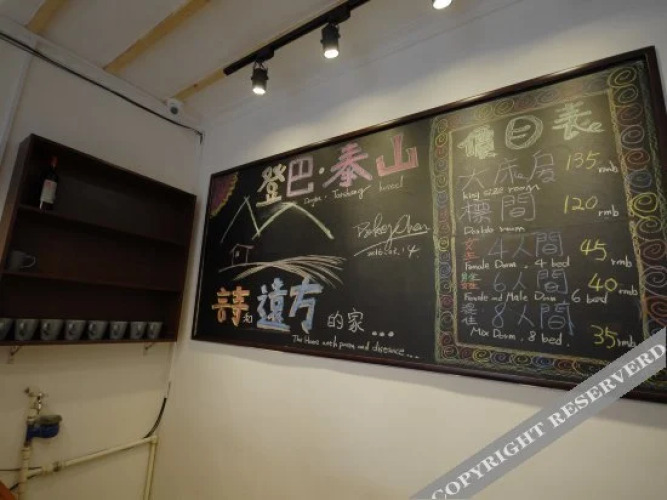 登巴·泰山
Dengba · Taishang hostel
詩和遠方的家...
The Home with poem and distance...
價目表
大床房 135 rmb
king size room
標間 120 rmb
Double room
女生 4人間 45 rmb
Female Dorm, 4 bed
6人間 40 rmb
Female and Male Dorm 6 bed
混住 8人間 35 rmb
Mix Dorm, 8 bed
COPYRIGHT RESERVERD